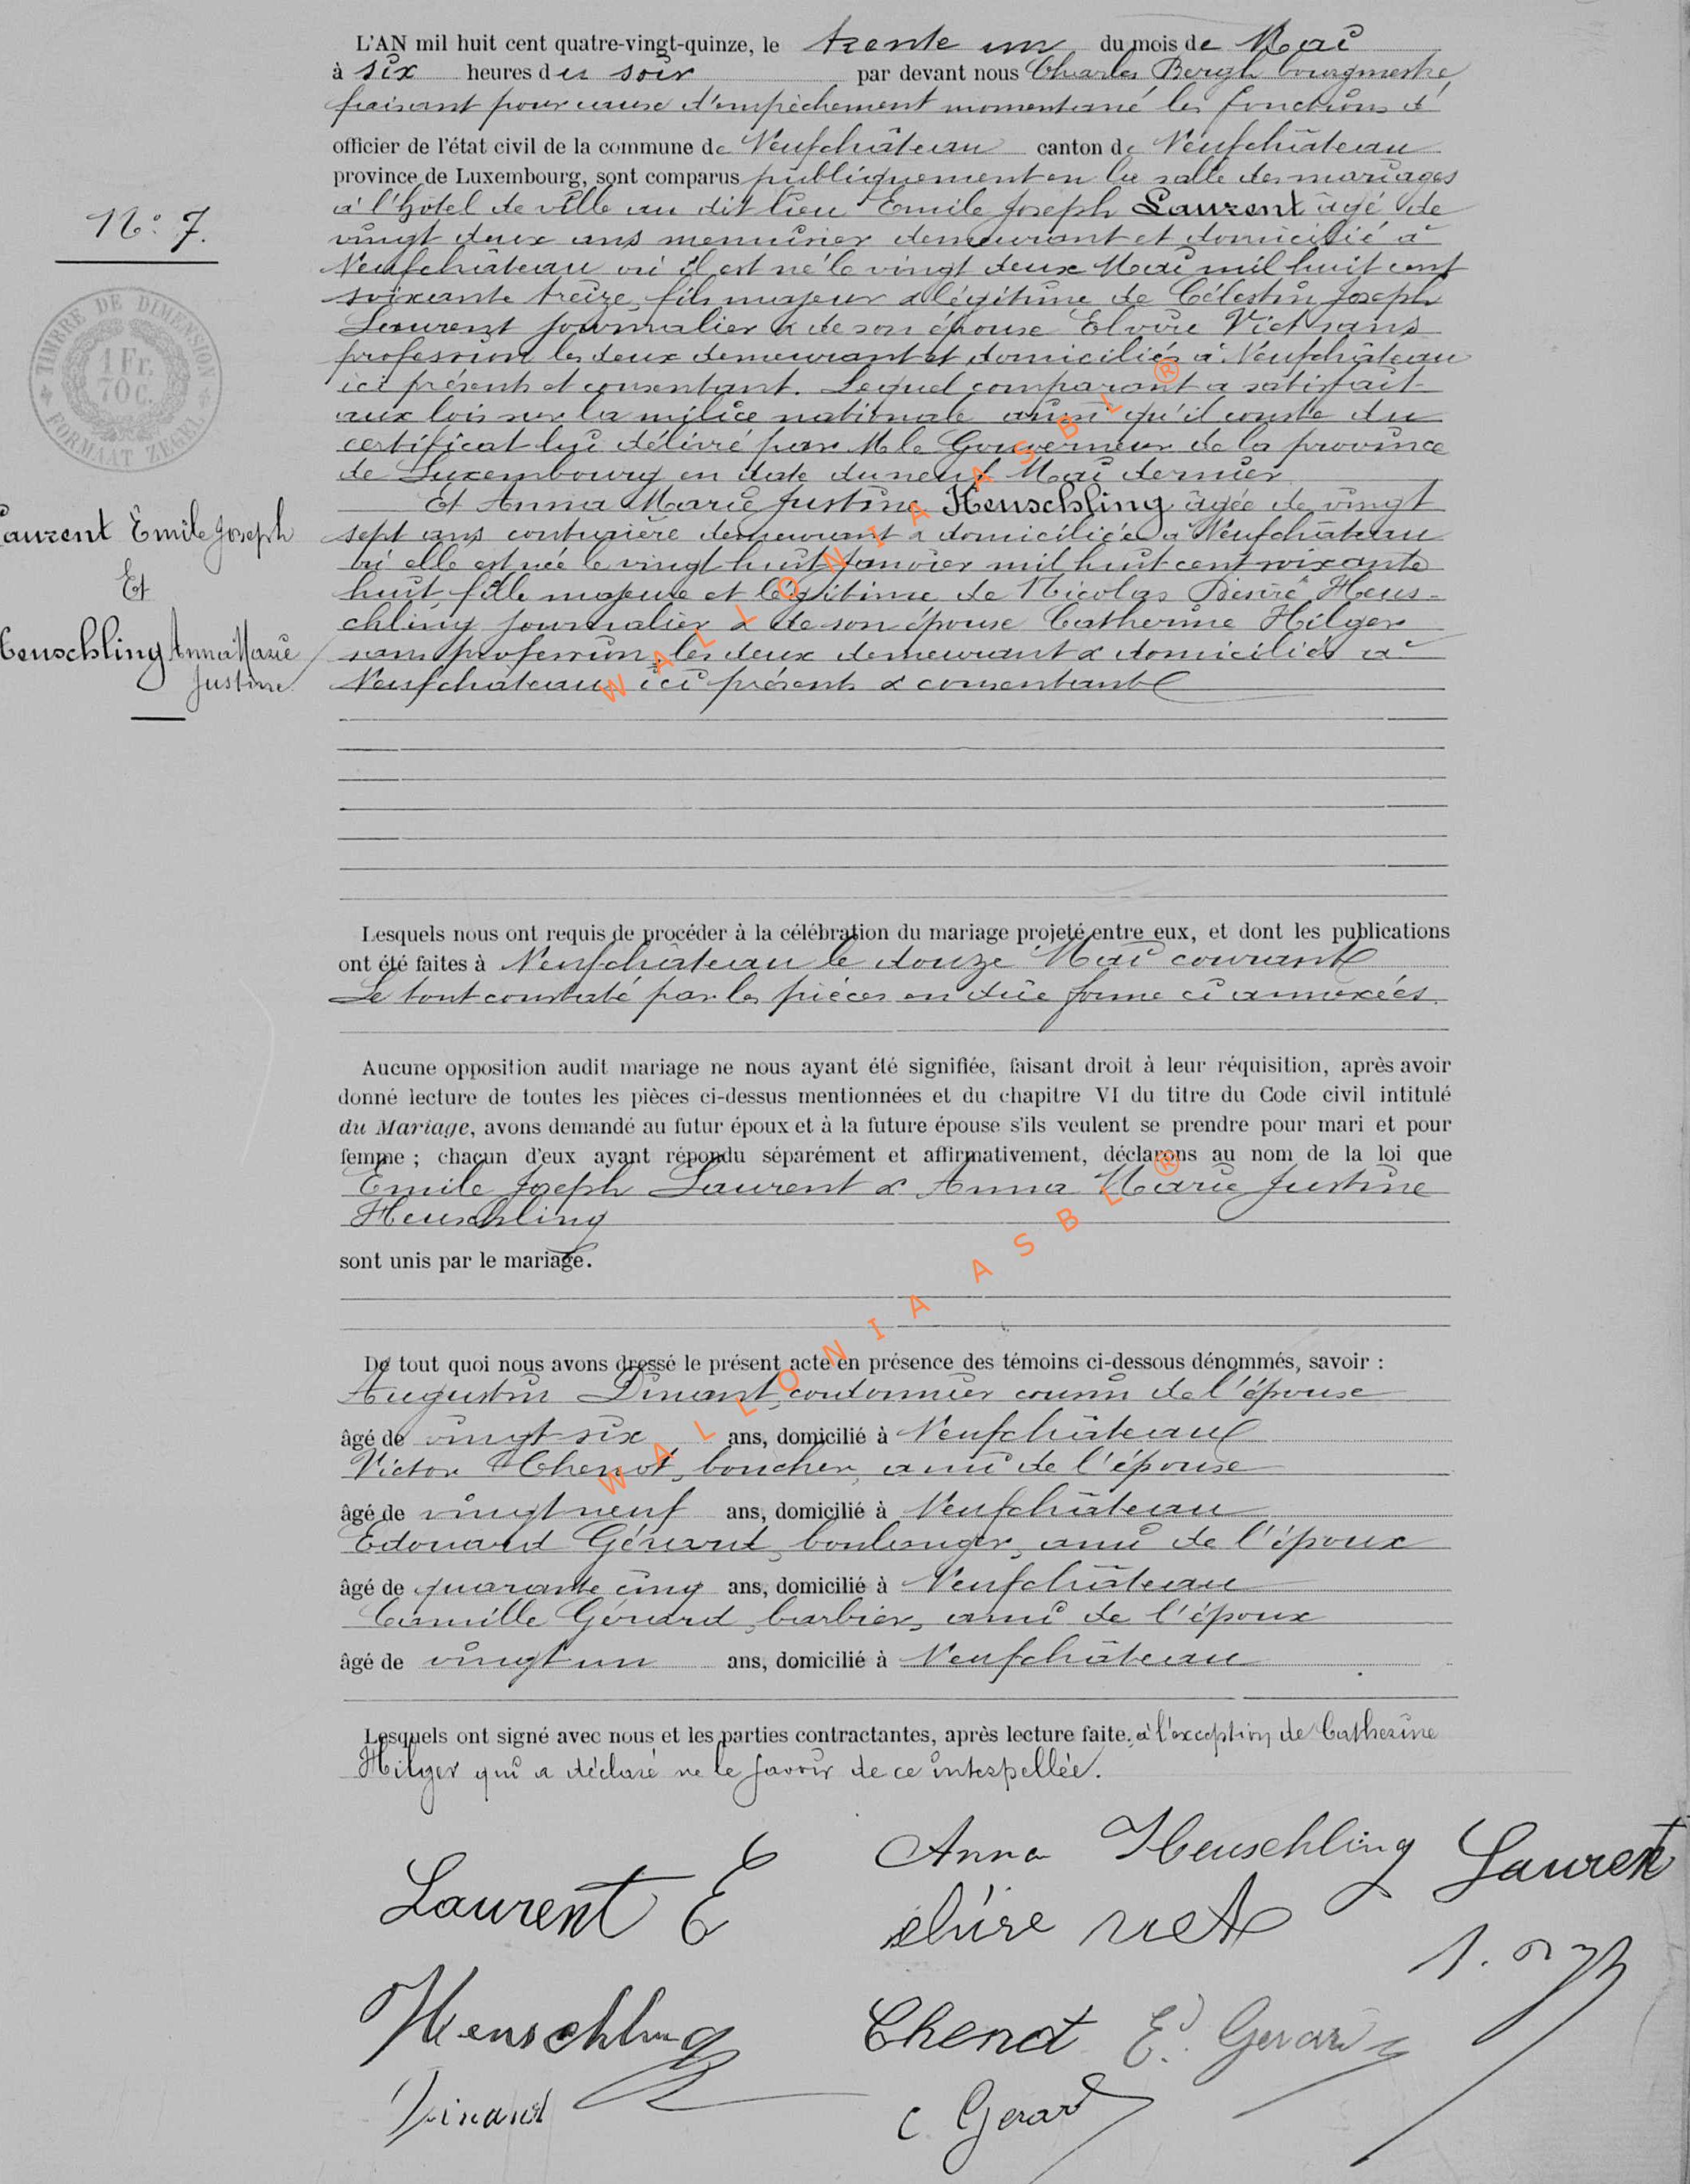 L'AN mil huit cent quatre-vingt-quinze, le trente un du mois de Mai
à six heures du soir par devant nous Charles Bergh bourgmestre,
faisant pour cause d'empêchement momentané les fonctions d'
officier de l'état civil de la commune de Neufchâteau canton de Neufchâteau
province de Luxembourg, sont comparus publiquement en la salle des mariages
à l'hôtel de ville au dit lieu Emile Joseph Laurent âgé de
vingt deux ans menuisier demeurant et domicilié à
Neufchâteau où il est né le vingt deux Mai mil huit cent
soixante treize, fils majeur & légitime de Célestin Joseph
Laurent journalier & de son épouse Elvire Viet sans
profession les deux demeurant et domiciliés à Neufchâteau
ici présents et consentant. Lequel comparant a satisfait
aux lois sur la milice nationale ainsi qu'il conste du
certificat lui délivré par M le Gouverneur de la province
de Luxembourg en date du neuf Mai dernier
Et Anna Marie Justine Heuschling âgée de vingt
sept ans couturière demeurant & domiciliée à Neufchâteau
où elle est née le vingt huit Janvier mil huit cent soixante
huit, fille majeure et légitime de Nicolas Désiré Heus-
chling journalier & de son épouse Catherine Hilger
sans profession, les deux demeurant & domiciliés à
Neufchâteau ici présents & consentant
N° 7.
TIMBRE DE DIMENSION
1 Fr.
70 c.
FORMAAT ZEGEL
Laurent Emile Joseph
Et
Heuschling Anna Marie
Justine
Lesquels nous ont requis de procéder à la célébration du mariage projeté entre eux, et dont les publications
ont été faites à Neufchâteau le douze Mai courant
Le tout constaté par les pièces en due forme ci annexées.
Aucune opposition audit mariage ne nous ayant été signifiée, faisant droit à leur réquisition, après avoir
donné lecture de toutes les pièces ci-dessus mentionnées et du chapitre VI du titre du Code civil intitulé
du Mariage, avons demandé au futur époux et à la future épouse s'ils veulent se prendre pour mari et pour
femme ; chacun d'eux ayant répondu séparément et affirmativement, déclarons au nom de la loi que
Emile Joseph Laurent & Anna Marie Justine
Heuschling
sont unis par le mariage.
De tout quoi nous avons dressé le présent acte en présence des témoins ci-dessous dénommés, savoir :
Augustin Dinant, cordonnier cousin de l'épouse
âgé de vingt six ans, domicilié à Neufchâteau
Victor Chenot, boucher, ami de l'épouse
âgé de vingt neuf ans, domicilié à Neufchâteau
Edouard Gérard, boulanger, ami de l'époux
âgé de quarante cinq ans, domicilié à Neufchâteau
Camille Gérard, barbier, ami de l'époux
âgé de vingt un ans, domicilié à Neufchâteau
Lesquels ont signé avec nous et les parties contractantes, après lecture faite, à l'exception de Catherine
Hilger qui a déclaré ne le savoir de ce interpellée.
Laurent E
Anna Heuschling
Laurent
elvire viet
Heuschling
Chenot
Ed. Gerard
Dinant
C Gerard
WALLONIA ASBL ®
WALLONIA ASBL ®